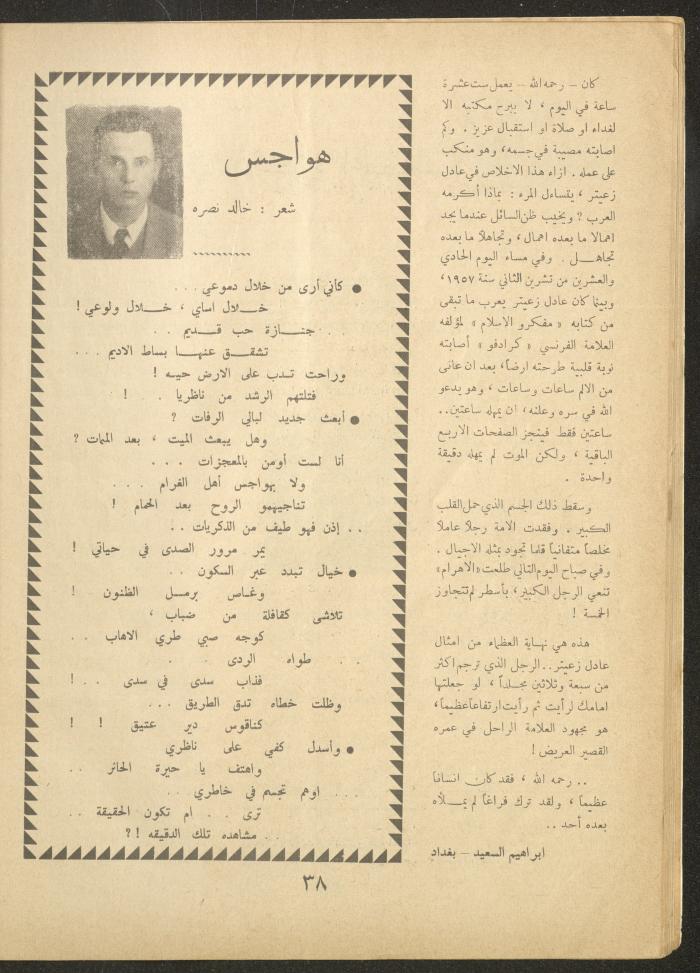 كان – رحمه الله – يعمل ست عشرة
ساعة في اليوم ، لا يبرح مكتبه الا
لغداء او صلاة او استقبال عزيز . وكم
اصابته مصيبة في جسمه، وهو منكب
على عمله . ازاء هذا الاخلاص في عادل
زعيتر ، يتساءل المرء : بماذا أكرمه
العرب ? ويخيب ظن السائل عندما يجد
اهمالا ما بعده اهمال ، وتجاهلا ما بعده
تجاهل . وفي مساء اليوم الحادي
والعشرين من تشرين الثاني سنة ١٩٥٧،
وبينما كان عادل زعيتر يعرب ما تبقى
من كتابه « مفكرو الاسلام » لمؤلفه
العلامة الفرنسي « كرادفو » أصابته
نوبة قلبية طرحته ارضاً، بعد ان عانى
من الالم ساعات وساعات ، وهو يدعو
الله في سره وعلنه، ان يمهله ساعتين..
ساعتين فقط فينجز الصفحات الاربع
الباقية ، ولكن الموت لم يمهله دقيقة
واحدة .
وسقط ذلك الجسم الذي حمل القلب
الكبير . وفقدت الامة رجلا عاملا
مخلصاً متفانياً قلما تجود بمثله الاجيال .
وفي صباح اليوم التالي طلعت «الاهرام»
تنعي الرجل الكبير، بأسطر لم تتجاوز
الخمسة !
هذه هي نهاية العظماء من امثال
عادل زعيتر.. الرجل الذي ترجم اكثر
من سبعة وثلاثين مجلداً ، لو جعلتها
امامك لرأيت ثم رأيت ارتفاعاً عظيماً،
هو مجهود العلامة الراحل في عمره
القصير العريض !
.. رحمه الله ، فقد كان انساناً
عظيماً ، ولقد ترك فراغاً لم يملأه
بعده أحد ..
ابراهيم السعيد – بغداد
هواجس
شعر : خالد نصره
● كأني أرى من خلال دموعي . . .
خلال اساي ، خلال ولوعي !
جنازة حب قديم . .
تشقق عنها بساط الاديم . . .
وراحت تدب على الارض حيه !
فتلتهم الرشد من ناظريا . !
● أبعث جديد لبالي الرفات ?
وهل يبعث الميت ، بعد الممات ?
أنا لست أومن بالمعجزات . . .
ولا بهواجس أهل الغرام . . .
تناجيهمو الروح بعد الحمام !
. . إذن فهو طيف من الذكريات . .
يمر مرور الصدى في حياتي !
● خيال تبدد عبر السكون . .
وغاص برمل الظنون !
تلاشى كقافلة من ضباب ،
كوجه صبي طري الاهاب . .
. . . طواه الردى . .
فذاب سدى في سدى . . !
وظلت خطاه تدق الطريق . . .
كناقوس دير عتيق ! !
● وأسدل كفي على ناظري
واهتف يا حيرة الحائر . .
. . . اوهم تجسم في خاطري . .
ترى . . ام تكون الحقيقة . .
. . مشاهده تلك الدقيقه !?
٣٨